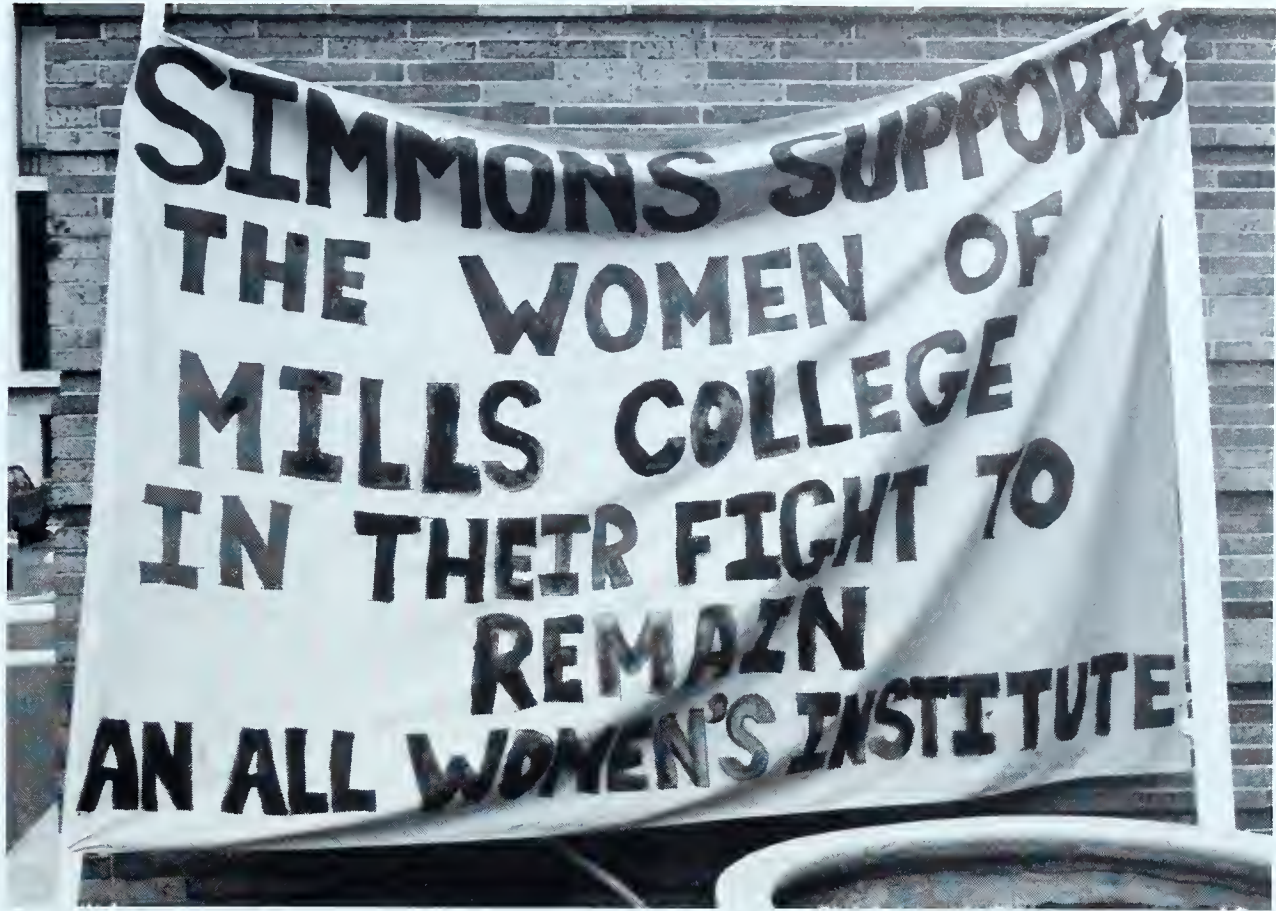 SIMMONS SUPPORTS
THE WOMEN OF
MILLS COLLEGE
IN THEIR FIGHT TO
REMAIN
AN ALL WOMEN'S INSTITUTE